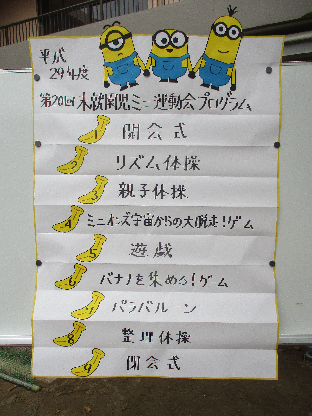 平成
29年度
第20回 未就園児ミニ運動会プログラム
1 開会式
2 リズム体操
3 親子体操
4 ミニオンズ宇宙からの大脱走!ゲーム
5 遊戯
6 バナナを集めろ!ゲーム
7 パラバルーン
8 整理体操
9 閉会式